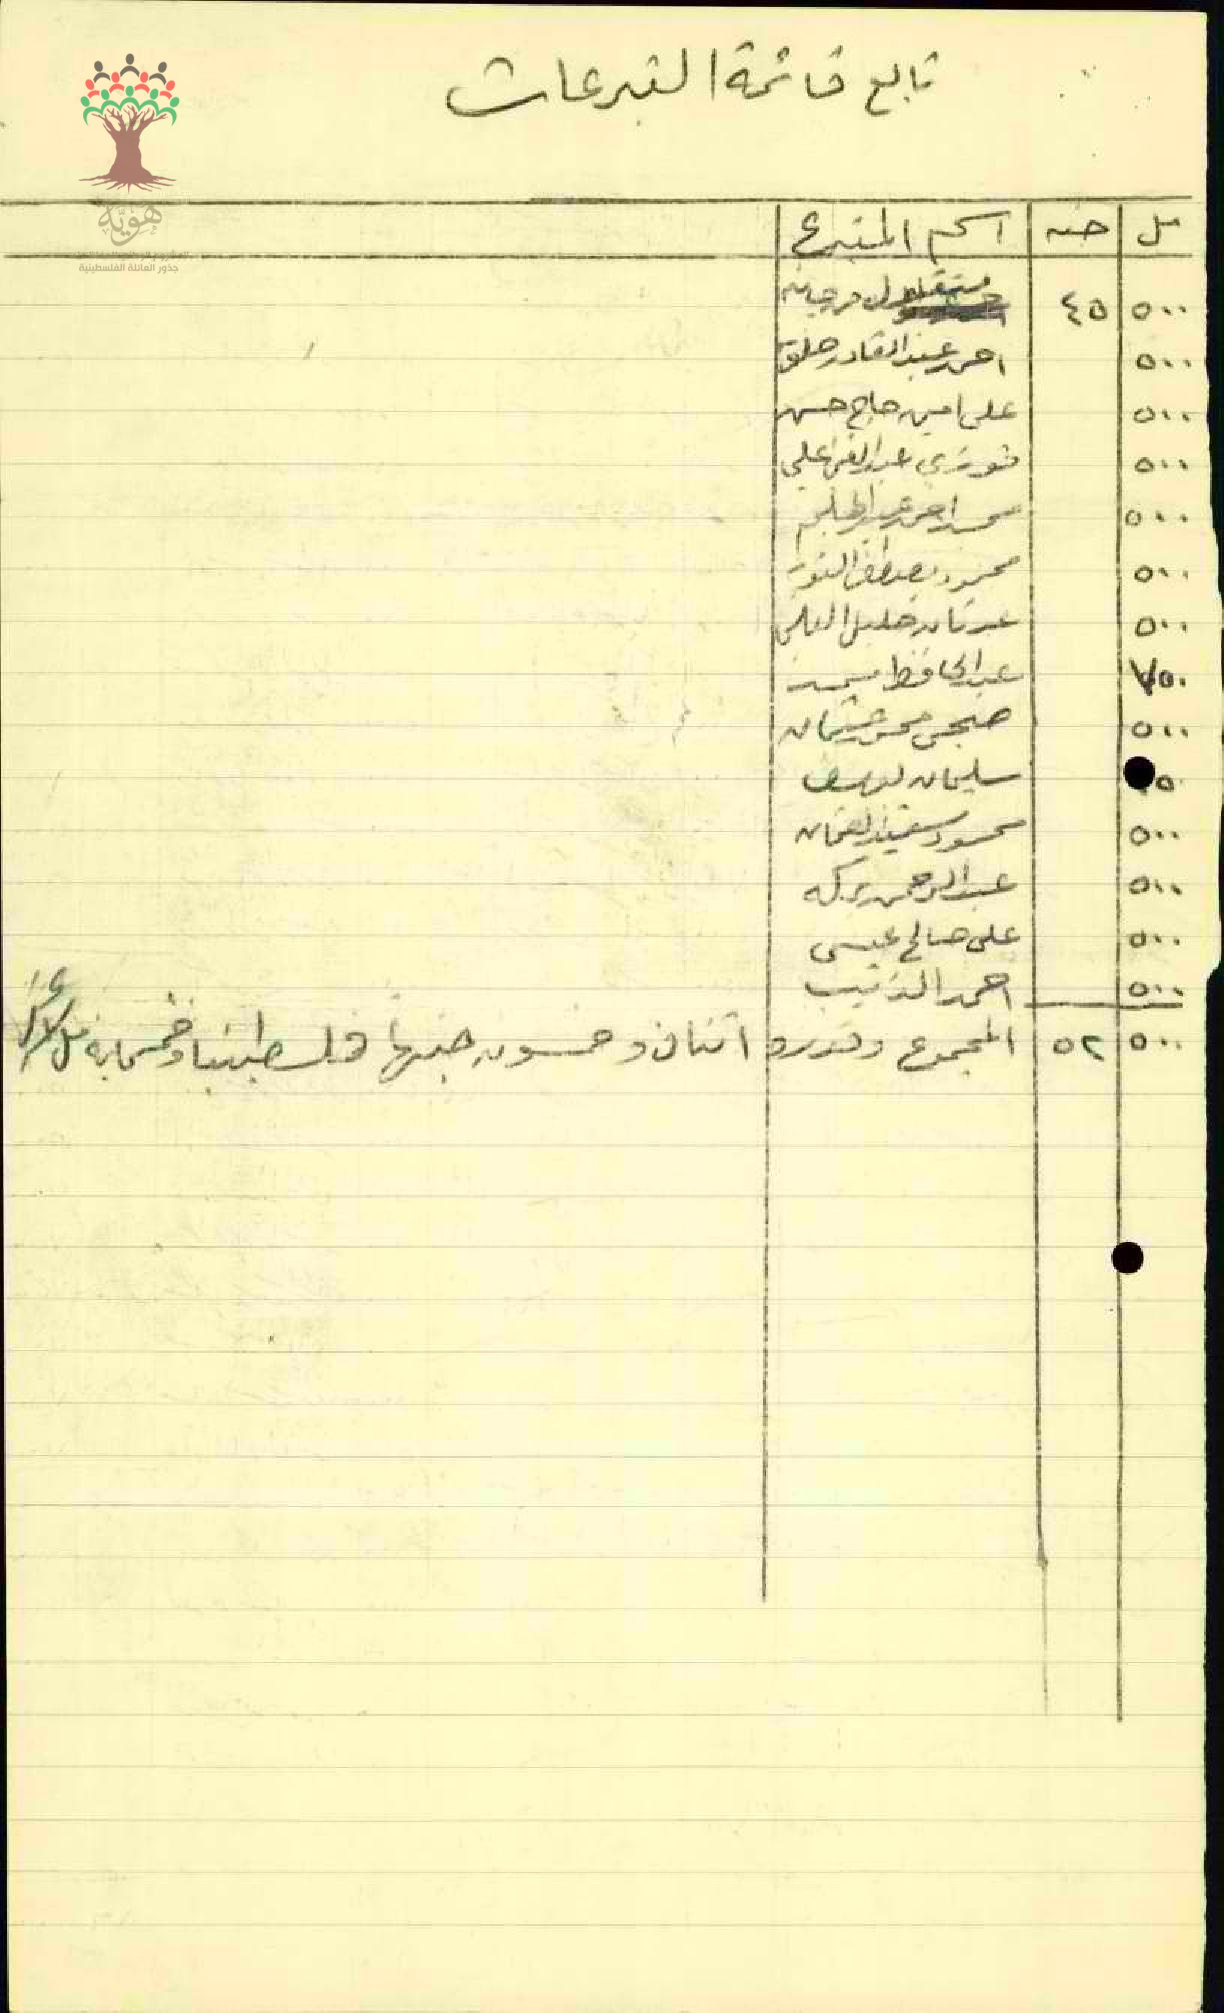 تابع قائمة التبرعات
هوية
جذور العائلة الفلسطينية
مل جنيه اسم المتبرع
٥٠٠ ٤٥ منقول مرجانه
٥٠٠ احمد عبد القادر
٥٠٠ على امين حاج حسن
٥٠٠ عبد الغنى على
٥٠٠ محمد احمد عبد الحليم
٥٠٠ محمود مصطفى
٥٠٠ عدنان خليل العلى
٧٥٠ عبد الحافظ
٥٠٠ صبحى محمد عثمان
٥٠ سليمان يوسف
٥٠٠ محمود سعيد
٥٠٠ عبد الرحمن بركه
٥٠٠ على صالح عيسى
٥٠٠ احمد
٥٠٠ ٥٢ المجموع وقدره اثنان وخمسون جنيها فلسطينيا وخمسماية مل